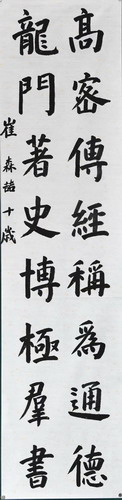 高密傳經稱為通德
龍門著史博極羣書
崔森喆十歲